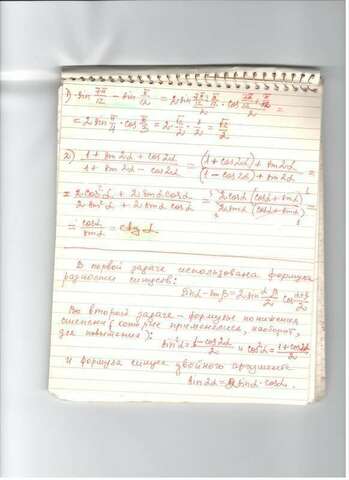 1) sin 7π/12 - sin π/12 = 2 sin (7π/12 - π/12)/2 · cos (7π/12 + π/12)/2 =
= 2 sin π/4 · cos π/3 = 2 · √2/2 · 1/2 = √2/2
2) (1 + sin2α + cos2α)/(1 + sin2α - cos2α) = ((1 + cos2α) + sin2α)/((1 - cos2α) + sin2α) =
= (2cos²α + 2 sinα cosα)/(2 sin²α + 2 sinα cosα) = (2cosα (cosα + sinα))/(2sinα (cosα + sinα)) =
= cosα/sinα = ctgα
В первой задаче использована формула
разности синусов:
sinα - sinβ = 2 sin (α-β)/2 cos (α+β)/2
Во второй задаче - формулы понижения
степени (которые применялись, наоборот,
для повышения): sin²α = (1-cos2α)/2 и cos²α = (1+cos2α)/2
и формула синуса двойного аргумента
sin2α = 2 sinα · cosα.